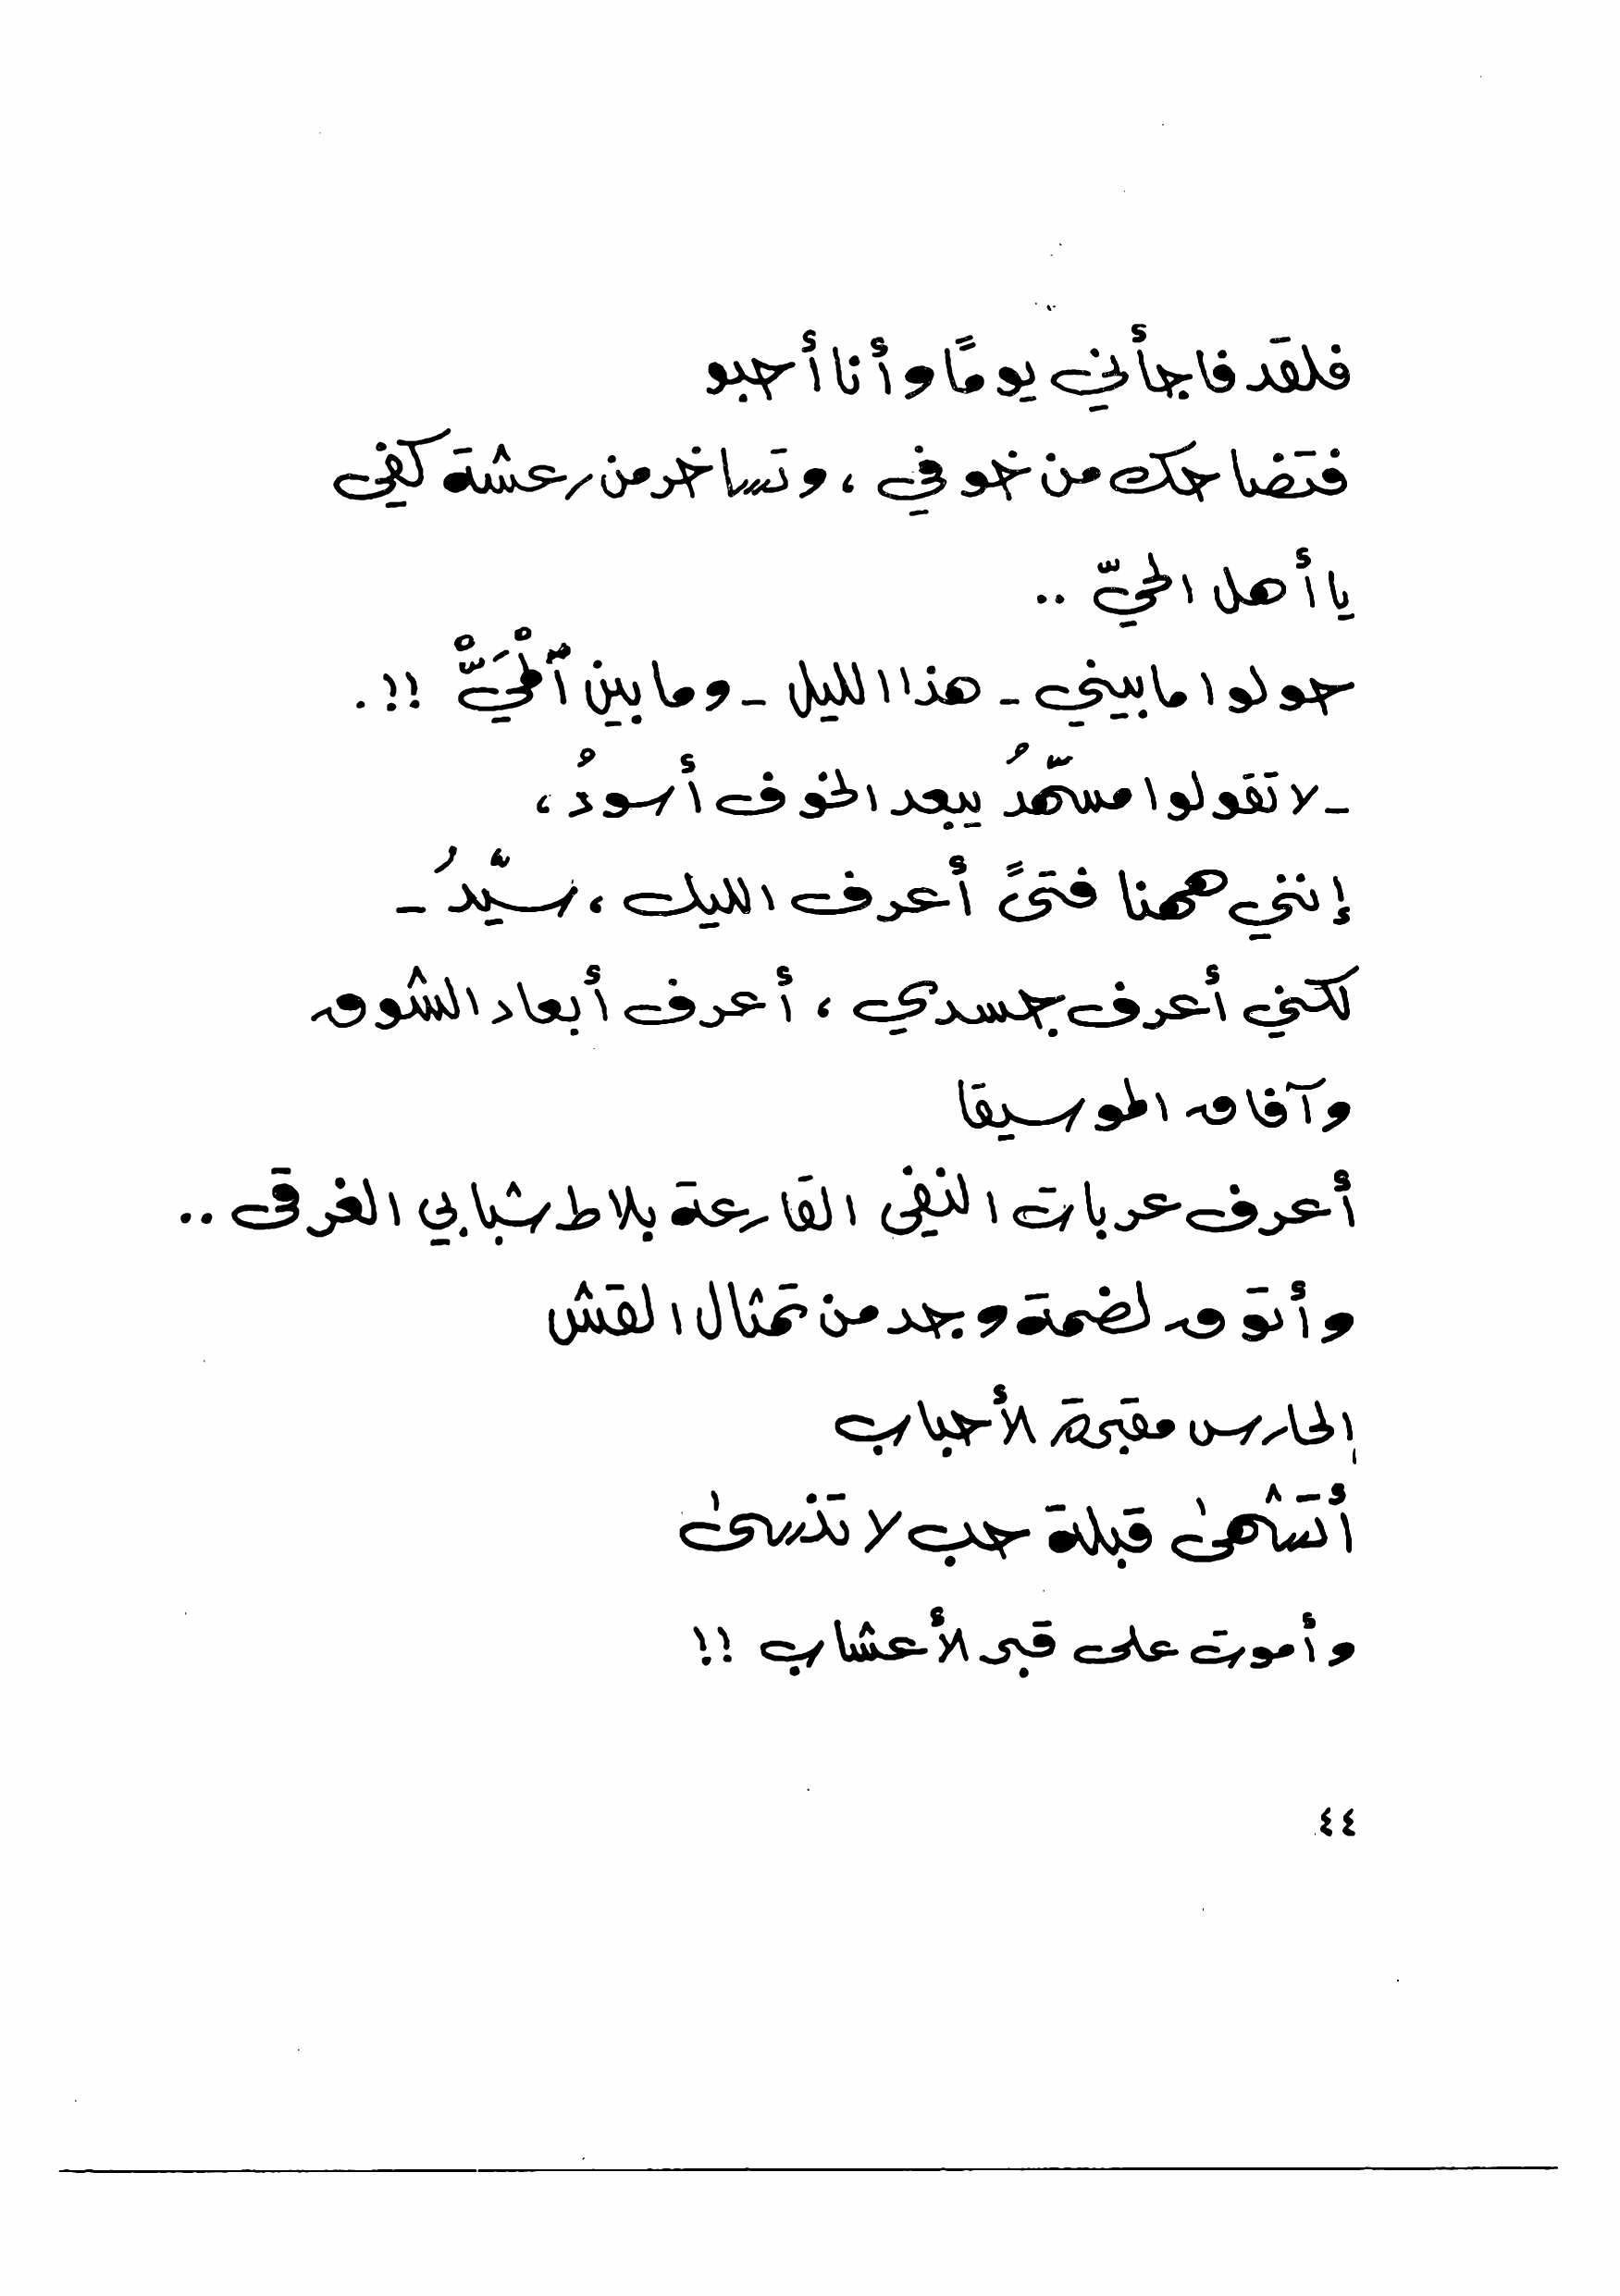 فلقد فاجأني يومًا وأنا أحبو
فتضاحك من خوفي ، وتساخر من رعشة كفي
يا أهل الحيّ ..
حولوا ما بيني - هذا الليل - وما بين الْحَيّْ !! .
- لا تقولوا مسهّدُ يبعد الخوف أسودُ ،
إنني ههنا فتىً أعرف الليل ، سيّدُ -
لكني أعرف جسدي ، أعرف أبعاد الشوق
وآفاق الموسيقا
أعرف عربات النفي القارعة بلاط شبابي الغرقى ..
وأتوق لضمة وجد من تمثال القش
الحارس مقبرة الأحباب
أتشهى قبلة حب لا تنسى
وأموت على قبر الأعشاب !!
٤٤